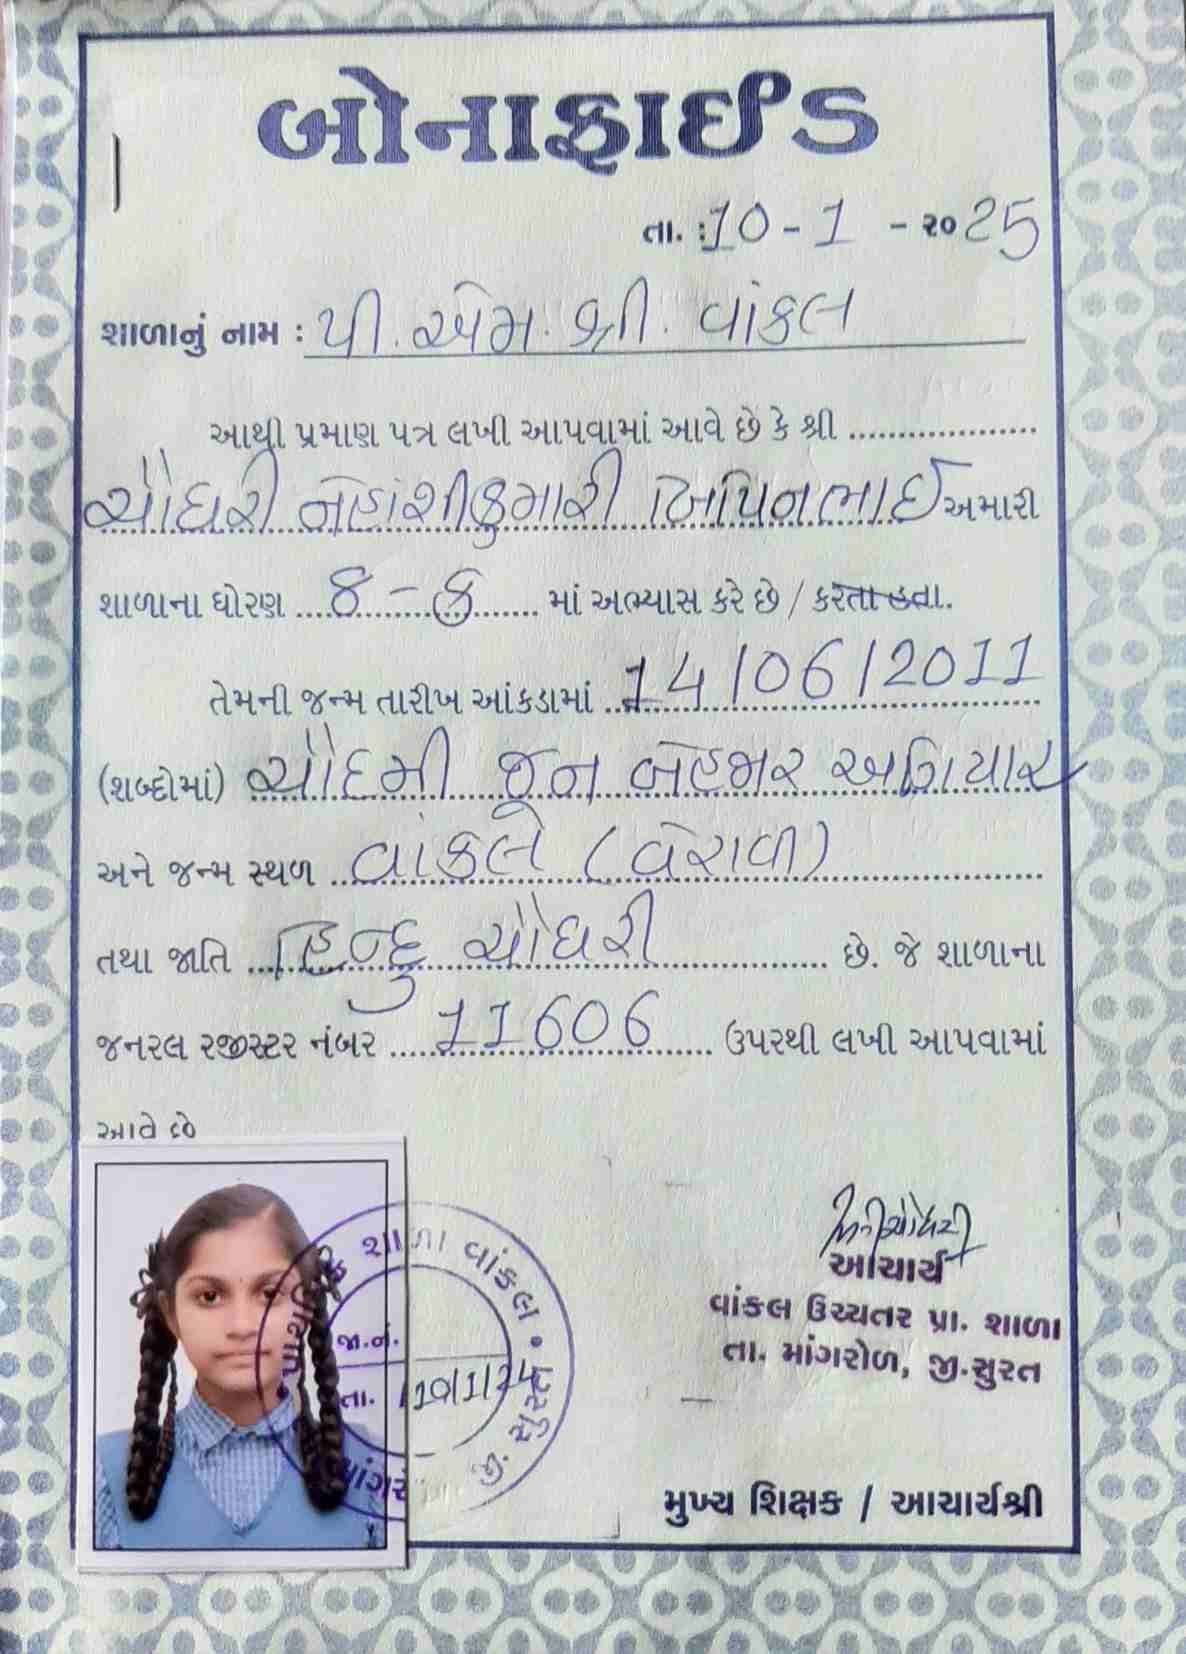 બોનાફાઈડ
તા. : 10 - 1 - ૨૦25
શાળાનું નામ : પી. એમ. શ્રી. વાંકલ
આથી પ્રમાણ પત્ર લખી આપવામાં આવે છે કે શ્રી ....................
ચૌધરી નેહાંશીકુમારી બિપિનભાઈ અમારી
શાળાના ધોરણ 8 - ક માં અભ્યાસ કરે છે / કરતા હતા.
તેમની જન્મ તારીખ આંકડામાં 14/06/2011
(શબ્દોમાં) ચૌદમી જૂન બેહજાર અગિયાર
અને જન્મ સ્થળ વાંકલ (વેરાવી)
તથા જાતિ હિન્દુ ચૌધરી છે. જે શાળાના
જનરલ રજીસ્ટર નંબર 11606 ઉપરથી લખી આપવામાં
આવે છે
શાળા વાંકલ
જા.નં.
તા. 10/1/25
જી. સુરત
આચાર્ય
વાંકલ ઉચ્યતર પ્રા. શાળા
તા. માંગરોળ, જી.સુરત
મુખ્ય શિક્ષક / આચાર્યશ્રી